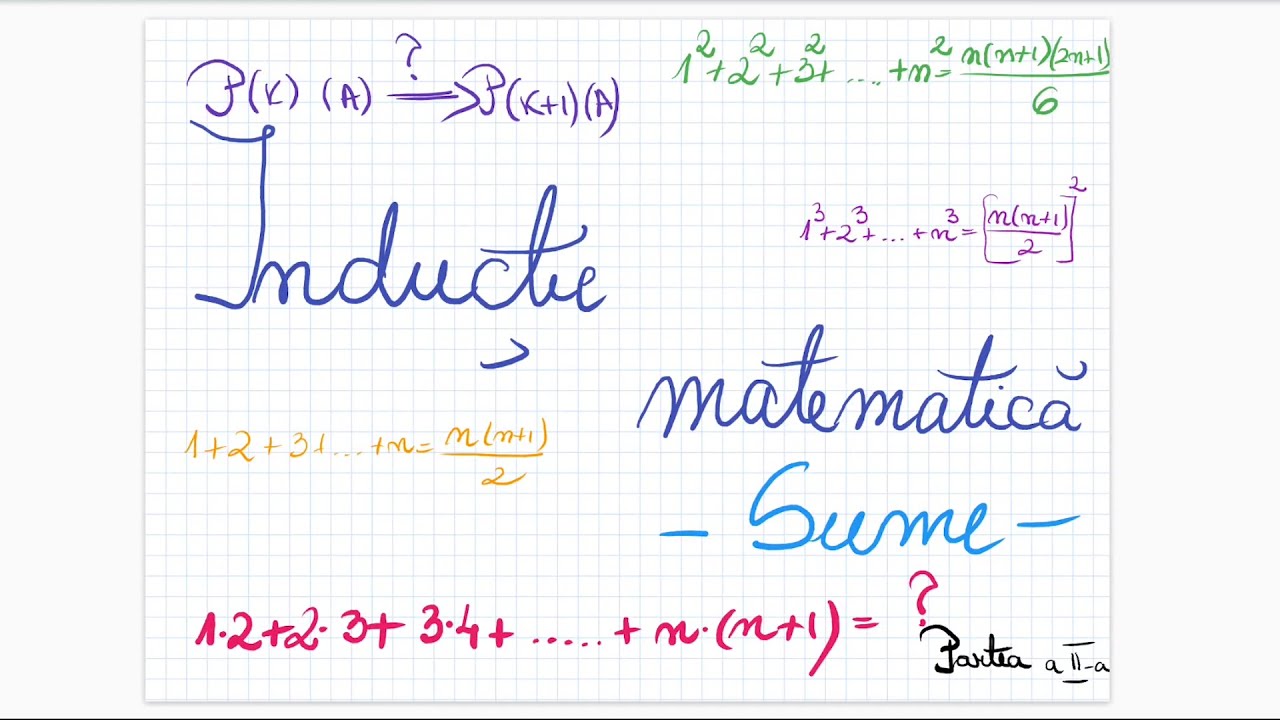 P(K) (A) ?⟹ P(K+1)(A)
1²+2²+3²+....+n²=n(n+1)(2n+1)/6
Inducție
1³+2³+...+n³=[n(n+1)/2]²
matematică
1+2+3+...+n=n(n+1)/2
- Sume -
1·2+2·3+3·4+.....+n·(n+1)= ?
Partea a II-a